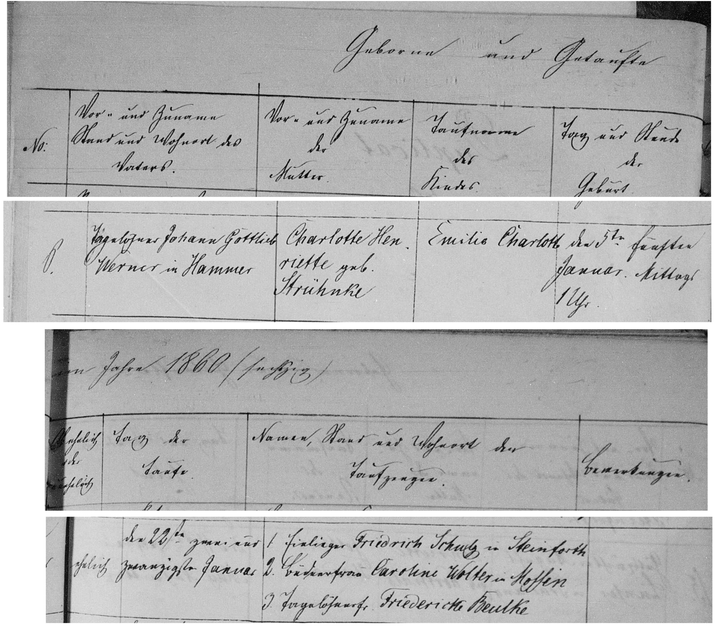 Geborne und Getaufte
No.
Vor- und Zuname
Stand und Wohnort des
Vaters.
Vor- und Zuname
der
Mutter.
Taufname
des
Kindes.
Tag und Stunde
der
Geburt.
Tagelöhner Johann Gottlieb
Werner in Hammer
Charlotte Hen-
riette geb.
Strühnke
Emilie Charlotte
den 5ten fünften
Januar. Mittags
1 Uhr.
im Jahre 1860 (sechzig)
Ehelich
oder
unehelich
Tag der
Taufe.
Namen, Stand und Wohnort der
Taufzeugen.
Bemerkungen.
ehelich
den 22ten zwei und
zwanzigsten Januar
1. Einlieger Friedrich Schulz in Steinforth
2. Büdnerfrau Caroline Wolter in Mossin
3. Tagelöhnerfr. Friedericke Beutke